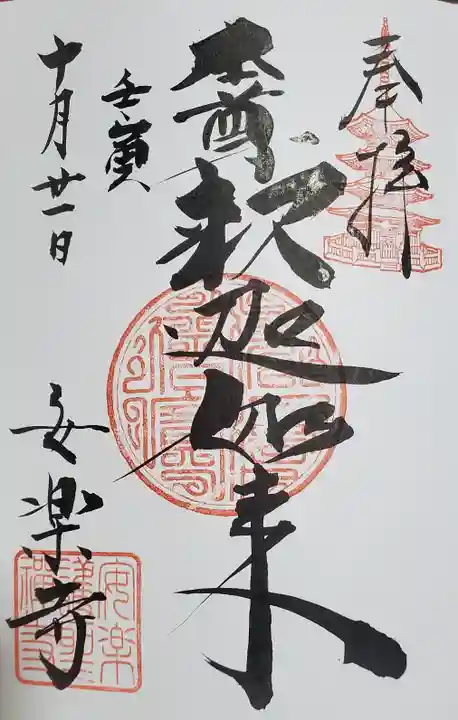 奉拝
本尊釈迦如来
壬寅
十月廿一日
安楽寺
安楽
護聖
禅寺